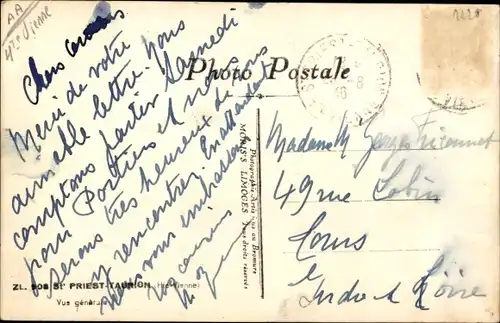 AA
Hte Vienne
1228
Photo Postale
Chers cousins
Merci de votre
aimable lettre. Nous
comptons partir Samedi
pour Poitiers et nous
serons très heureux de vous
y rencontrer. En attendant
nous vous embrassons
Vos cousins
Madame M Georges
49 rue
Tours
Indre et Loire
Photographie Artistique au Bromure
MORIS'S LIMOGES
Tous droits réservés
ZL. 908 St PRIEST-TAURION (Hte-Vienne)
Vue générale